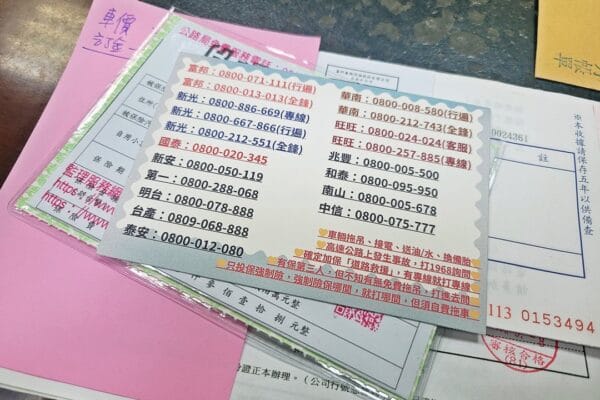 車價
訂金
行帳單
富邦：0800-071-111(行遍)
富邦：0800-013-013(全鋒)
新光：0800-886-669(專線)
新光：0800-667-866(行遍)
新光：0800-212-551(全鋒)
國泰：0800-020-345
新安：0800-050-119
第一：0800-288-068
明台：0800-078-888
台產：0809-068-888
泰安：0800-012-080
華南：0800-008-580(行遍)
華南：0800-212-743(全鋒)
旺旺：0800-024-024(客服)
旺旺：0800-257-885(專線)
兆豐：0800-005-500
和泰：0800-095-950
南山：0800-005-678
中信：0800-075-777
車輛拖吊、接電、送油/水、換備胎
高速公路上發生事故，打1968詢問
確定加保「道路救援」，有專線就打專線
有保第三人，但不知有無免費拖吊，打進去問
只投保強制險，強制險保哪間，就打哪間，但須自費拖車
監理服務網
https
保險期
自用小
佰壹拾捌元整
萬元整
0024361
註
※本收據請保存五年以供備查
113 0153494
審核合格
(81)
證正本辦理。(公司行號